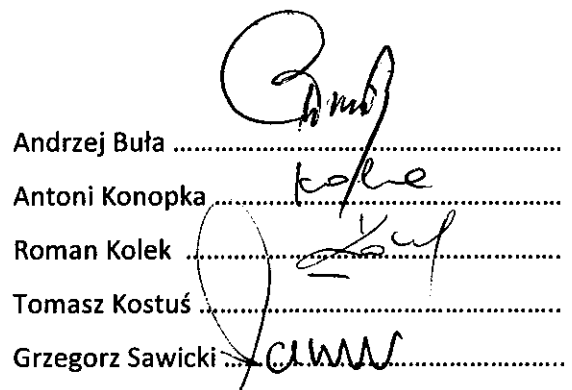 Andrzej Buła ..........................................................
Antoni Konopka ..........................................................
Roman Kolek ..........................................................
Tomasz Kostuś ..........................................................
Grzegorz Sawicki ..........................................................